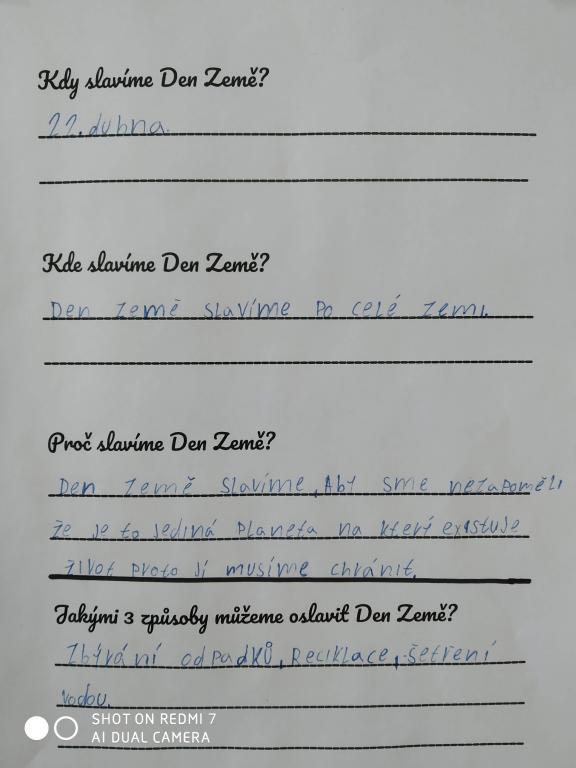 Kdy slavíme Den Země?
22. dubna.
Kde slavíme Den Země?
Den Země slavíme po celé zemi.
Proč slavíme Den Země?
Den Země slavíme, Aby sme nezapoměli
že je to jediná planeta na který existuje
život proto jí musíme chránit.
Jakými 3 způsoby můžeme oslavit Den Země?
Zbýrání odpadků, Reciklace, šetření
vodou.
SHOT ON REDMI 7
AI DUAL CAMERA